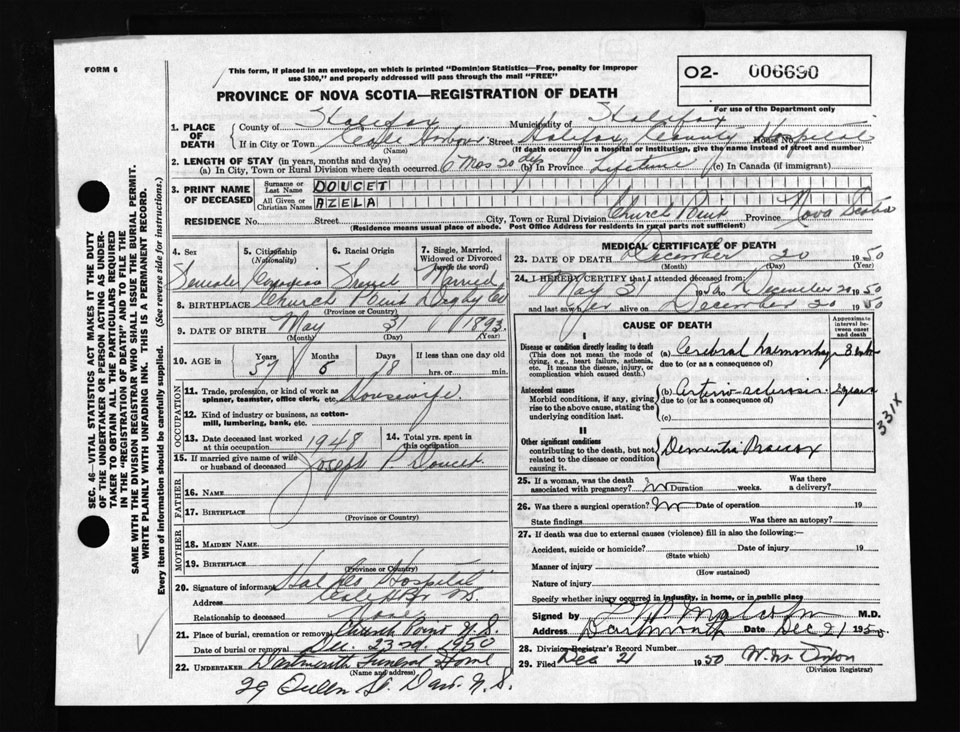 FORM 6
This form, if placed in an envelope, on which is printed "Dominion Statistics—Free, penalty for improper
use $300," and properly addressed will pass through the mail "FREE"
PROVINCE OF NOVA SCOTIA—REGISTRATION OF DEATH
O2- 006690
For use of the Department only
SEC. 46—VITAL STATISTICS ACT MAKES IT THE DUTY
OF THE UNDERTAKER OR PERSON ACTING AS UNDER-
TAKER TO OBTAIN ALL THE PARTICULARS REQUIRED
IN THE "REGISTRATION OF DEATH" AND TO FILE THE
SAME WITH THE DIVISION REGISTRAR WHO SHALL ISSUE THE BURIAL PERMIT.
WRITE PLAINLY WITH UNFADING INK. THIS IS A PERMANENT RECORD.
Every item of information should be carefully supplied. (See reverse side for instructions.)
1. PLACE OF DEATH County of Halifax Municipality of Halifax
If in City or Town Cole Harbour Street Halifax County Hospital House No.
(Name) (If death occurred in a hospital or institution, give the name instead of street and number)
2. LENGTH OF STAY (in years, months and days)
(a) In City, Town or Rural Division where death occurred 6 Mos 20 dys (b) In Province Lifetime (c) In Canada (if immigrant)
3. PRINT NAME OF DECEASED Surname or Last Name DOUCET
All Given or Christian Names AZELA
RESIDENCE No. Street City, Town or Rural Division Church Point Province Nova Scotia
(Residence means usual place of abode. Post Office Address for residents in rural parts not sufficient)
4. Sex 5. Citizenship (Nationality) 6. Racial Origin 7. Single, Married, Widowed or Divorced (write the word)
Female Canadian French Married
8. BIRTHPLACE Church Point Digby Co
(Province or Country)
9. DATE OF BIRTH May 31 1893
(Month) (Day) (Year)
10. AGE in Years Months Days If less than one day old
57 6 18 hrs. or min.
OCCUPATION
11. Trade, profession, or kind of work as spinner, teamster, office clerk, etc. Housewife
12. Kind of industry or business, as cotton-mill, lumbering, bank, etc.
13. Date deceased last worked at this occupation 1948 14. Total yrs. spent in this occupation
15. If married give name of wife or husband of deceased Joseph P Doucet
FATHER
16. NAME
17. BIRTHPLACE
(Province or Country)
MOTHER
18. MAIDEN NAME
19. BIRTHPLACE
(Province or Country)
20. Signature of informant Hal Co Hospital
Address Cole HBr NS
Relationship to deceased None
21. Place of burial, cremation or removal Church Point N.S.
Date of burial or removal Dec. 23rd 1950
22. UNDERTAKER Dartmouth Funeral Home
(Name and address)
29 Queen St. Dart. N.S.
MEDICAL CERTIFICATE OF DEATH
23. DATE OF DEATH December 20 1950
(Month) (Day) (Year)
24. I HEREBY CERTIFY that I attended deceased from:
May 31 1950 to December 20 1950
and last saw her alive on December 20 1950
CAUSE OF DEATH
Approximate interval between onset and death
I
Disease or condition directly leading to death
(This does not mean the mode of dying, e.g., heart failure, asthenia, etc. It means the disease, injury, or complication which caused death.)
(a) Cerebral haemorrhage
due to (or as a consequence of)
Antecedent causes
Morbid conditions, if any, giving rise to the above cause, stating the underlying condition last.
(b) Arterio-sclerosis years
due to (or as a consequence of)
(c)
331X
II
Other significant conditions
contributing to the death, but not related to the disease or condition causing it.
Dementia Praecox
25. If a woman, was the death associated with pregnancy? No Duration weeks. Was there a delivery?
26. Was there a surgical operation? No Date of operation 19
State findings Was there an autopsy?
27. If death was due to external causes (violence) fill in also the following:—
Accident, suicide or homicide? Date of injury 19
(State which)
Manner of injury
(How sustained)
Nature of injury
Specify whether injury occurred in industry, in home, or in public place
Signed by Malcolm M.D.
Address Dartmouth Date Dec 21 1950
28. Division Registrar's Record Number
29. Filed Dec 21 1950 W.M. Dixon
(Division Registrar)